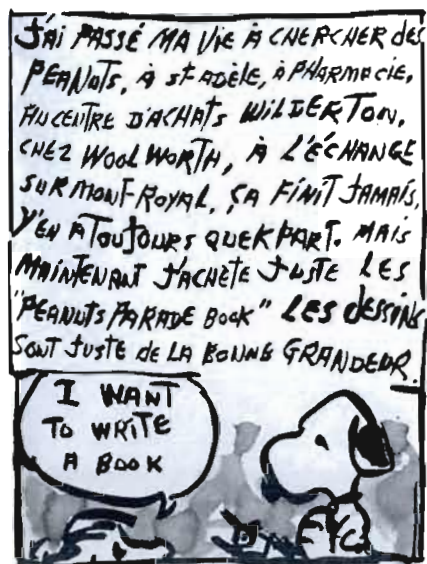 J'AI PASSÉ MA VIE À CHERCHER des
PEANUTS, À St-ADÈLE, À PHARMACIE,
AU CENTRE D'ACHATS WILDERTON,
CHEZ WOOLWORTH, À L'ÉCHANGE
SUR MONT-ROYAL, ÇA FINIT JAMAIS,
Y'EN A TOUJOURS QUEKPART. MAIS
MAINTENANT J'ACHÈTE JUSTE LES
"PEANUTS PARADE BOOK" LES dESSINS
SONT JUSTE de LA BONNE GRANDEUR.
I WANT
TO WRITE
A BOOK